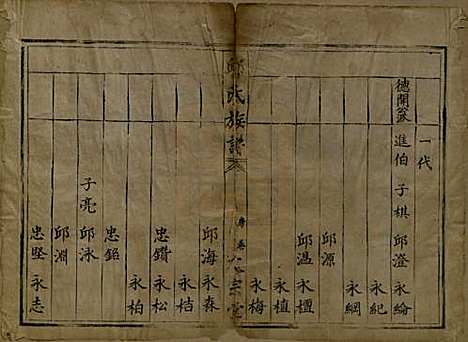 一代
德開公 進伯 子棋 邱澄 永綸
永紀
永綱
邱源
邱溫 永檀
永植
永梅
邱氏族譜
邱海 永森
永桔
忠鑽 永松
永柏
忠銘
子亮 邱泳
邱淵
忠堅 永志